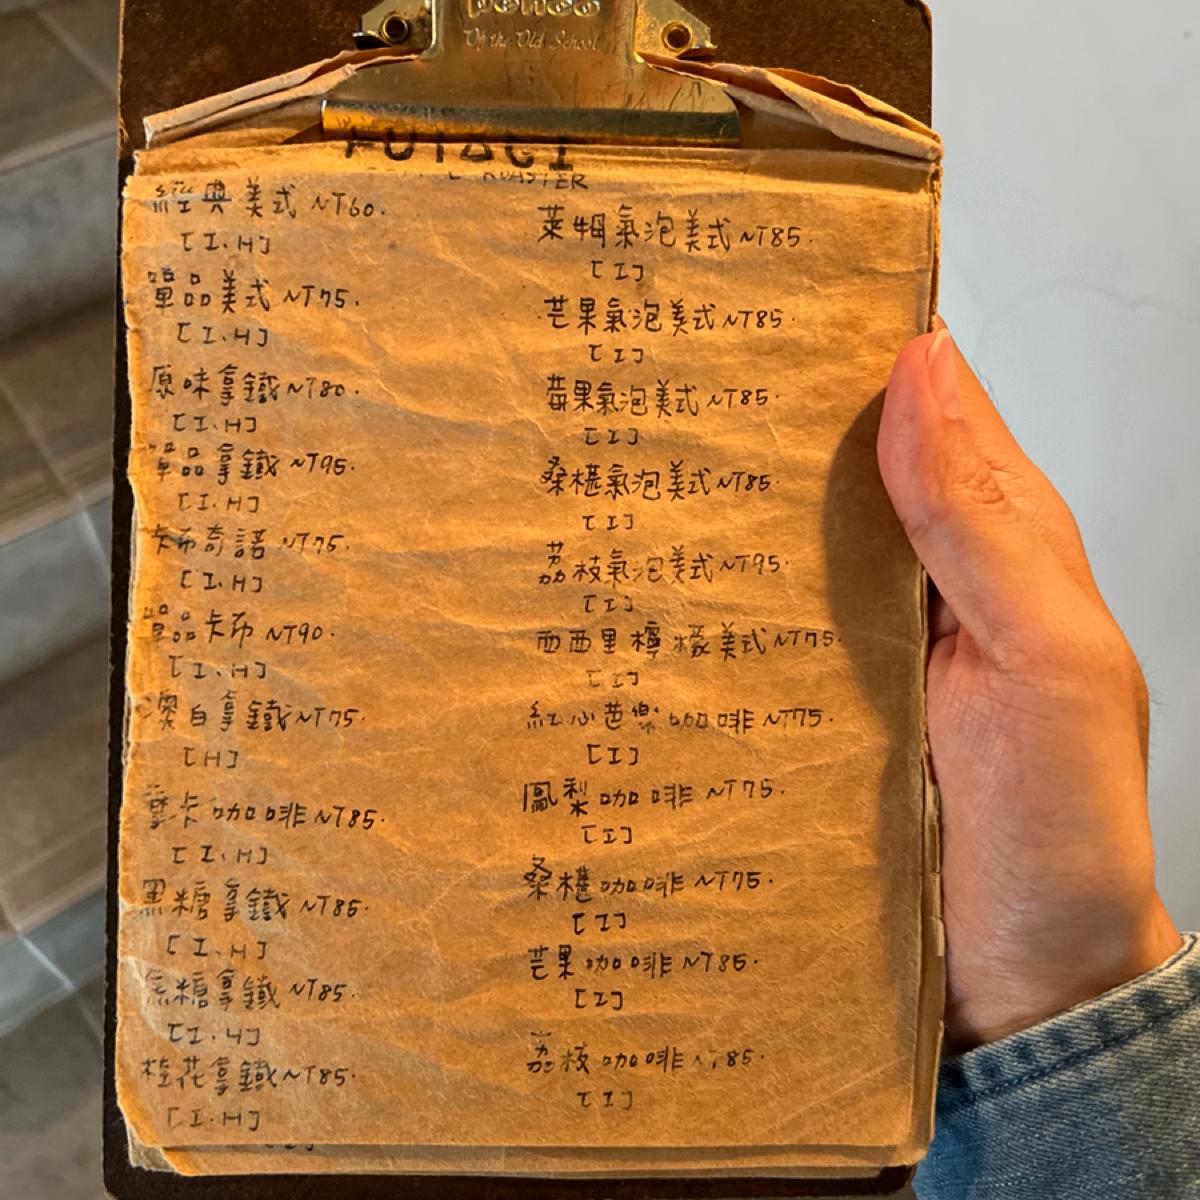 penco
Of the Old School
FUTAGI
ROASTER
經典美式 NT60.
[I.H]
單品美式 NT75.
[I.H]
原味拿鐵 NT80.
[I.H]
單品拿鐵 NT95.
[I.H]
卡布奇諾 NT75.
[I.H]
單品卡布 NT90.
[I.H]
澳白拿鐵 NT75.
[H]
摩卡咖啡 NT85.
[I.H]
黑糖拿鐵 NT85.
[I.H]
焦糖拿鐵 NT85.
[I.H]
桂花拿鐵 NT85.
[I.H]
萊姆氣泡美式 NT85.
[I]
芒果氣泡美式 NT85.
[I]
莓果氣泡美式 NT85.
[I]
桑椹氣泡美式 NT85.
[I]
荔枝氣泡美式 NT95.
[I]
西西里檸檬美式 NT75.
[I]
紅心芭樂咖啡 NT75.
[I]
鳳梨咖啡 NT75.
[I]
桑椹咖啡 NT75.
[I]
芒果咖啡 NT85.
[I]
荔枝咖啡 NT85.
[I]